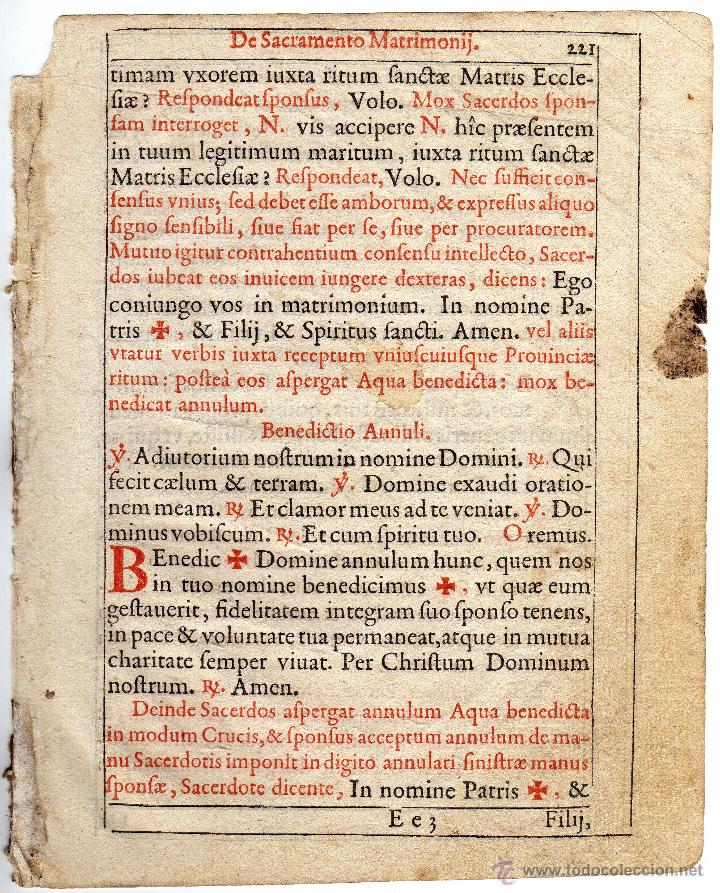 De Sacramento Matrimonij. 221
timam vxorem iuxta ritum ſanctæ Matris Eccle-
ſiæ? Reſpondeat ſponſus, Volo. Mox Sacerdos ſpon-
ſam interroget, N. vis accipere N. hîc præſentem
in tuum legitimum maritum, iuxta ritum ſanctæ
Matris Eccleſiæ? Reſpondeat, Volo. Nec ſufficit con-
ſenſus vnius; ſed debet eſſe amborum, & expreſſus aliquo
ſigno ſenſibili, ſiue fiat per ſe, ſiue per procuratorem.
Mutuo igitur contrahentium conſenſu intellecto, Sacer-
dos iubeat eos inuicem iungere dexteras, dicens: Ego
coniungo vos in matrimonium. In nomine Pa-
tris ✠, & Filij, & Spiritus ſancti. Amen. vel aliis
vtatur verbis iuxta receptum vniuſcuiuſque Prouinciæ
ritum: poſteà eos aſpergat Aqua benedicta: mox be-
nedicat annulum.
Benedictio Annuli.
℣. Adiutorium noſtrum in nomine Domini. ℟. Qui
fecit cælum & terram. ℣. Domine exaudi oratio-
nem meam. ℟ Et clamor meus ad te veniat. ℣. Do-
minus vobiſcum. ℟. Et cum ſpiritu tuo. Oremus.
BEnedic ✠ Domine annulum hunc, quem nos
in tuo nomine benedicimus ✠, vt quæ eum
geſtauerit, fidelitatem integram ſuo ſponſo tenens,
in pace & voluntate tua permaneat, atque in mutua
charitate ſemper viuat. Per Chriſtum Dominum
noſtrum. ℟. Amen.
Deinde Sacerdos aſpergat annulum Aqua benedicta
in modum Crucis, & ſponſus acceptum annulum de ma-
nu Sacerdotis imponit in digito annulari ſiniſtræ manus
ſponſæ, Sacerdote dicente, In nomine Patris ✠, &
E e 3 Filij,
www.todocoleccion.net